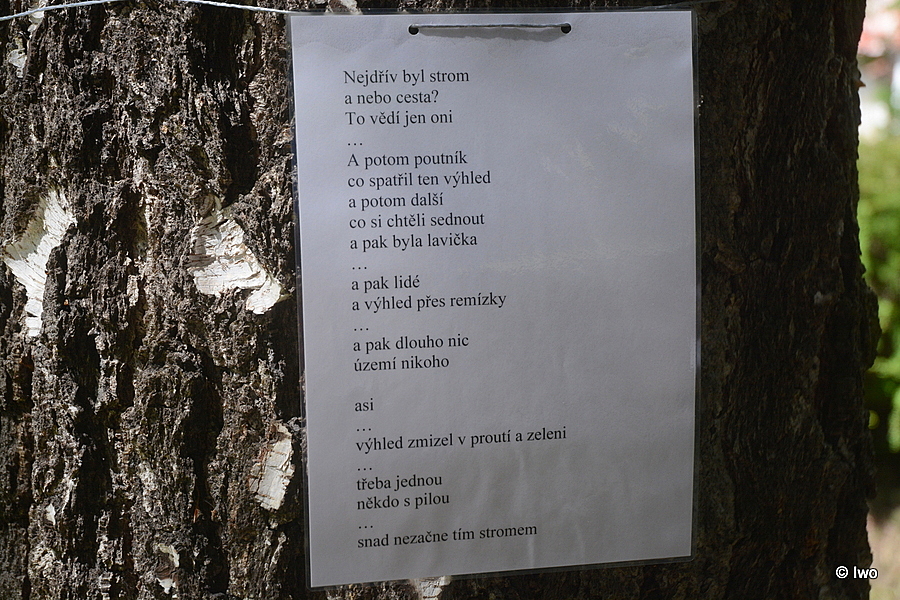 Nejdřív byl strom
a nebo cesta?
To vědí jen oni
…
A potom poutník
co spatřil ten výhled
a potom další
co si chtěli sednout
a pak byla lavička
…
a pak lidé
a výhled přes remízky
…
a pak dlouho nic
území nikoho
asi
…
výhled zmizel v proutí a zeleni
…
třeba jednou
někdo s pilou
…
snad nezačne tím stromem
© Iwo